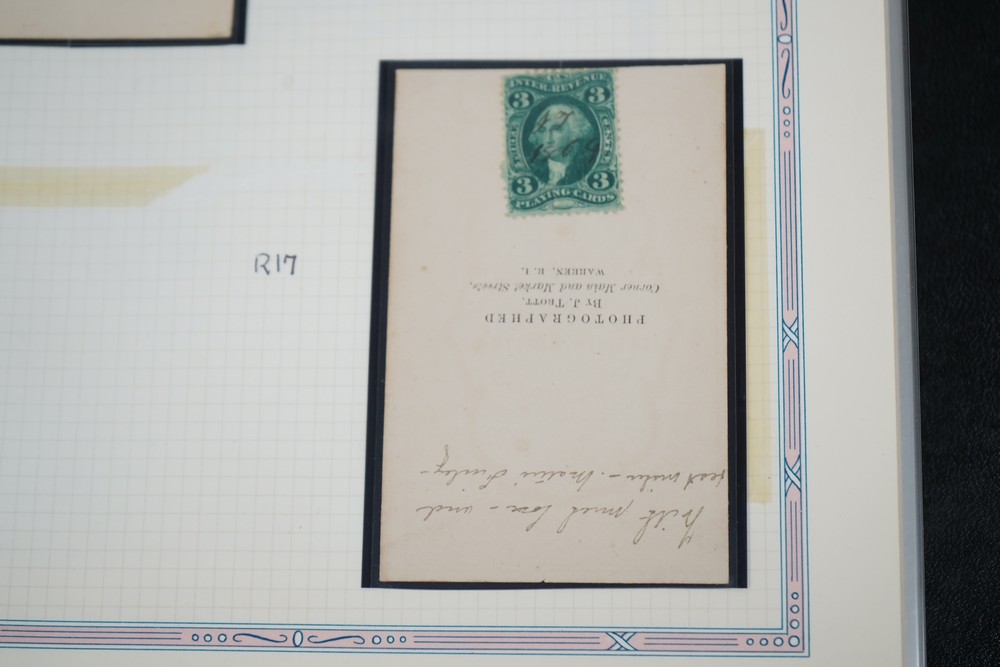 U.S.
INTER. REVENUE
3 3
THREE CENTS
3 3
PLAYING CARDS
R17
PHOTOGRAPHED
BY J. TROTT,
Corner Main and Market Streets,
WARREN, R. I.
With much love - and
best wishes -